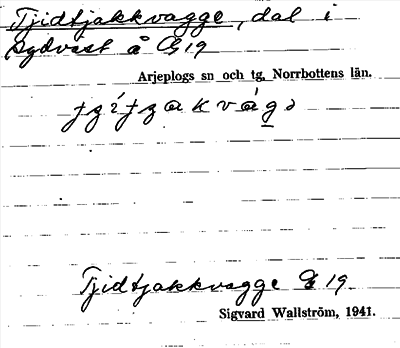 Tjidtjakkvagge, dal i
sydväst å G 19
Arjeplogs sn och tg, Norrbottens län.
Tjidtjakkvagge G 19
Sigvard Wallström, 1941.